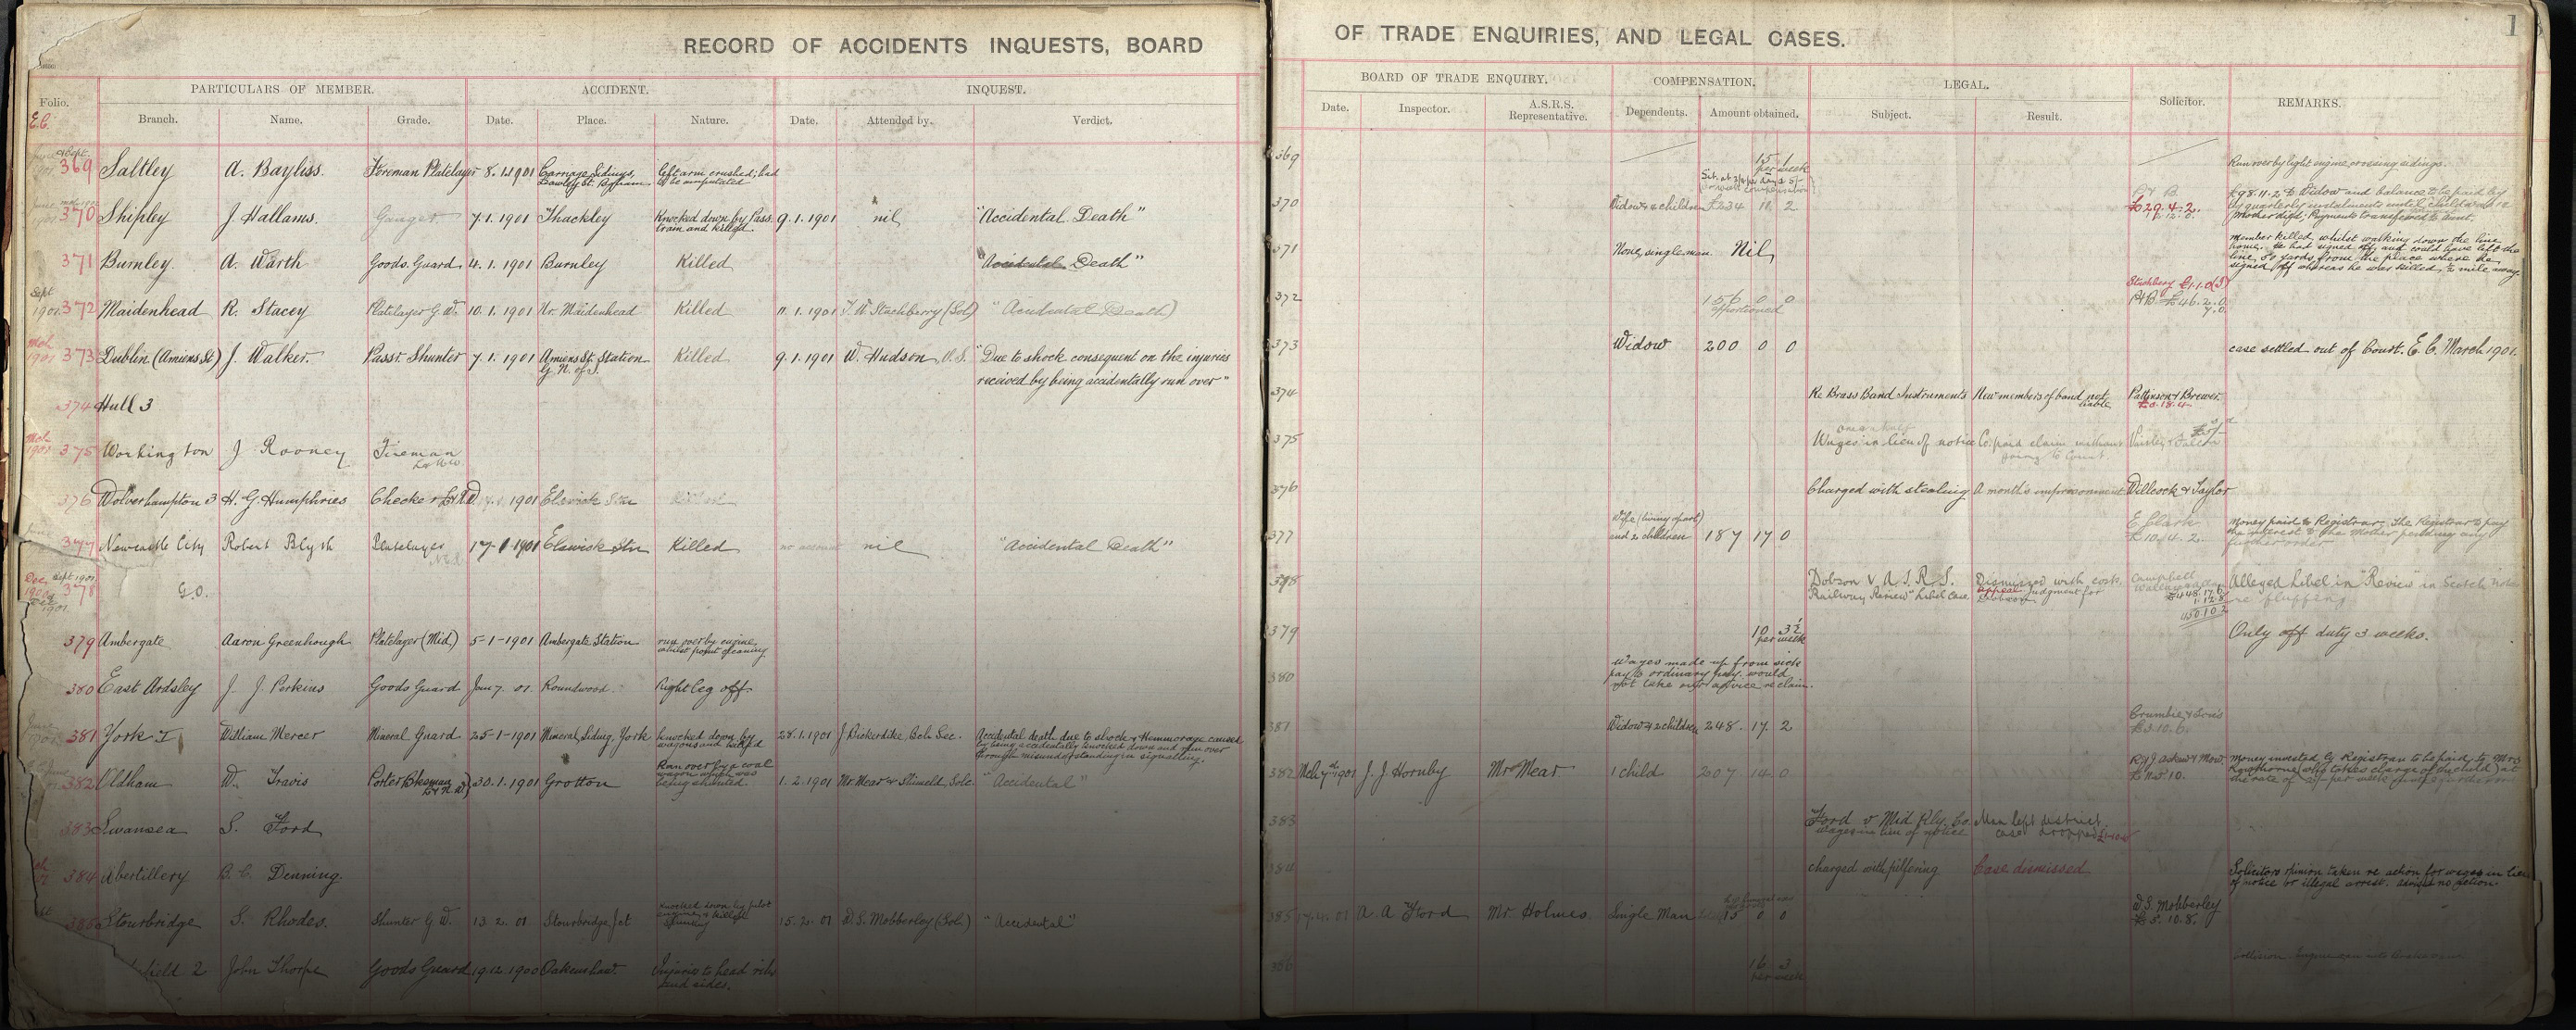 RECORD OF ACCIDENTS INQUESTS, BOARD OF TRADE ENQUIRIES, AND LEGAL CASES.
1
Folio.
E.C.
PARTICULARS OF MEMBER.
ACCIDENT.
INQUEST.
BOARD OF TRADE ENQUIRY.
COMPENSATION.
LEGAL.
Solicitor.
REMARKS.
Branch. Name. Grade. Date. Place. Nature. Date. Attended by. Verdict.
Date. Inspector. A.S.R.S. Representative. Dependents. Amount obtained. Subject. Result.
369 Saltley A. Bayliss. Foreman Platelayer 8.1.1901 Carriage Sidings, Lawley St. B'gham Left arm crushed; had to be amputated
369 15 1 per week Run over by light engine crossing sidings.
370 Shipley J. Hallams. Ganger 7.1.1901 Thackley Knocked down by Pass. train and killed. 9.1.1901 nil "Accidental Death"
370 Widow & 2 children £234 11. 2. £29.4.2. £98.11.2 to Widow and balance to be paid by
by quarterly instalments until children are 14
371 Burnley. A. Warth Goods Guard 4.1.1901 Burnley Killed "Accidental Death"
371 None, single man. Nil, Member killed whilst walking down the line
home. He had signed off, and could have left the
line 50 yards from the place where he
signed off whereas he was killed ½ mile away.
Sept 1901 372 Maidenhead R. Stacey Platelayer G.W. 10.1.1901 Nr. Maidenhead Killed 11.1.1901 T. W. Stuchberry (Sol) "Accidental Death)
372 156 0 0 apportioned Stuchbery £1.1.0 £46.2.0
Mch 1901 373 Dublin (Amiens St) J. Walker Passr. Shunter 7.1.1901 Amiens St. Station G.N. of I. Killed 9.1.1901 W. Hudson, O.S. "Due to shock consequent on the injuries
received by being accidentally run over"
373 Widow 200 0 0 case settled out of Court. E.C. March 1901.
374 Hull 3
374 Re Brass Band Instruments New members of band not liable Pattinson & Brewer. £0.18.4
Mch 1901 375 Workington J Rooney Fireman L&NW
375 Wages in lieu of notice Co. paid claim without going to Court
376 Wolverhampton 3 H. G. Humphries Checker L&NW 1901 Elswick Killed
376 Charged with stealing A month's imprisonment Willcock & Taylor
377 Newcastle City Robert Blyth Platelayer 17-1-1901 Elswick Stn Killed nil "Accidental Death"
377 Wife (living apart) and 2 children 187 17 0 E Clark £10.4.2. Money paid to Registrar. The Registrar to pay
the interest to the mother pending any
further order
Dec 1900 Sept 1901 378 G.O.
378 Dobson v A.S.R.S. "Railway Review" Libel case Dismissed with costs, appeal Judgment for Dobson Campbell £448.17.6 1.12.8 450 10 2 Alleged Libel in "Review" in Scotch notes
re "fluffing"
379 Ambergate Aaron Greenhough Platelayer (Mid.) 5-1-1901 Ambergate Station run over by engine, whilst point cleaning
379 10 3½ per week Only off duty 3 weeks.
380 East Ardsley J. J. Perkins Goods Guard Jan 7. 01. Roundwood. Right leg off.
380 Wages made up from sick
pay to ordinary pay. would
not take our advice re claim.
381 York I William Mercer Mineral Guard 25-1-1901 Mineral Siding, York knocked down by wagons and killed 28.1.1901 J. Bickerdike, Bch Sec. Accidental death due to shock & Hemmorage caused
by being accidentally knocked down and run over
through misunderstanding in signalling.
381 Widow & 2 children 248. 17. 2 Crumbie & Sons £3.10.6.
382 Oldham W. Travis Porter Bksman L&N.W) 30.1.1901 Grotton Ran over by a coal wagon which was being shunted. 1.2.1901 Mr. Mear "Accidental"
382 Mch 7th 1901 J. J. Hornby Mr Mear 1 child 207 14 0 Money invested by Registrar to be paid to Mrs
383 Swansea S. Ford
383 Ford v Mid Rly. Co. wages in lieu of notice Man left district case dropped
384 Abertillery B. C. Denning.
384 charged with pilfering Case dismissed Solicitors opinion taken re action for wages in lieu
of notice or illegal arrest. advised no action.
385 Stourbridge S. Rhodes. Shunter G W. 13.2.01 Stourbridge Jct Knocked down by pilot engine & killed Shunting 15.2.01 W. S. Mobberley (Sol.) "Accidental"
385 17.4.01 A. A Ford Mr. Holmes. Single Man 15 0 0 W.S. Mobberley £5.10.8.
field 2 John Thorpe Goods Guard 19.12.1900 Oakenshaw. Injuries to head ribs and sides.
386 16 3 per week